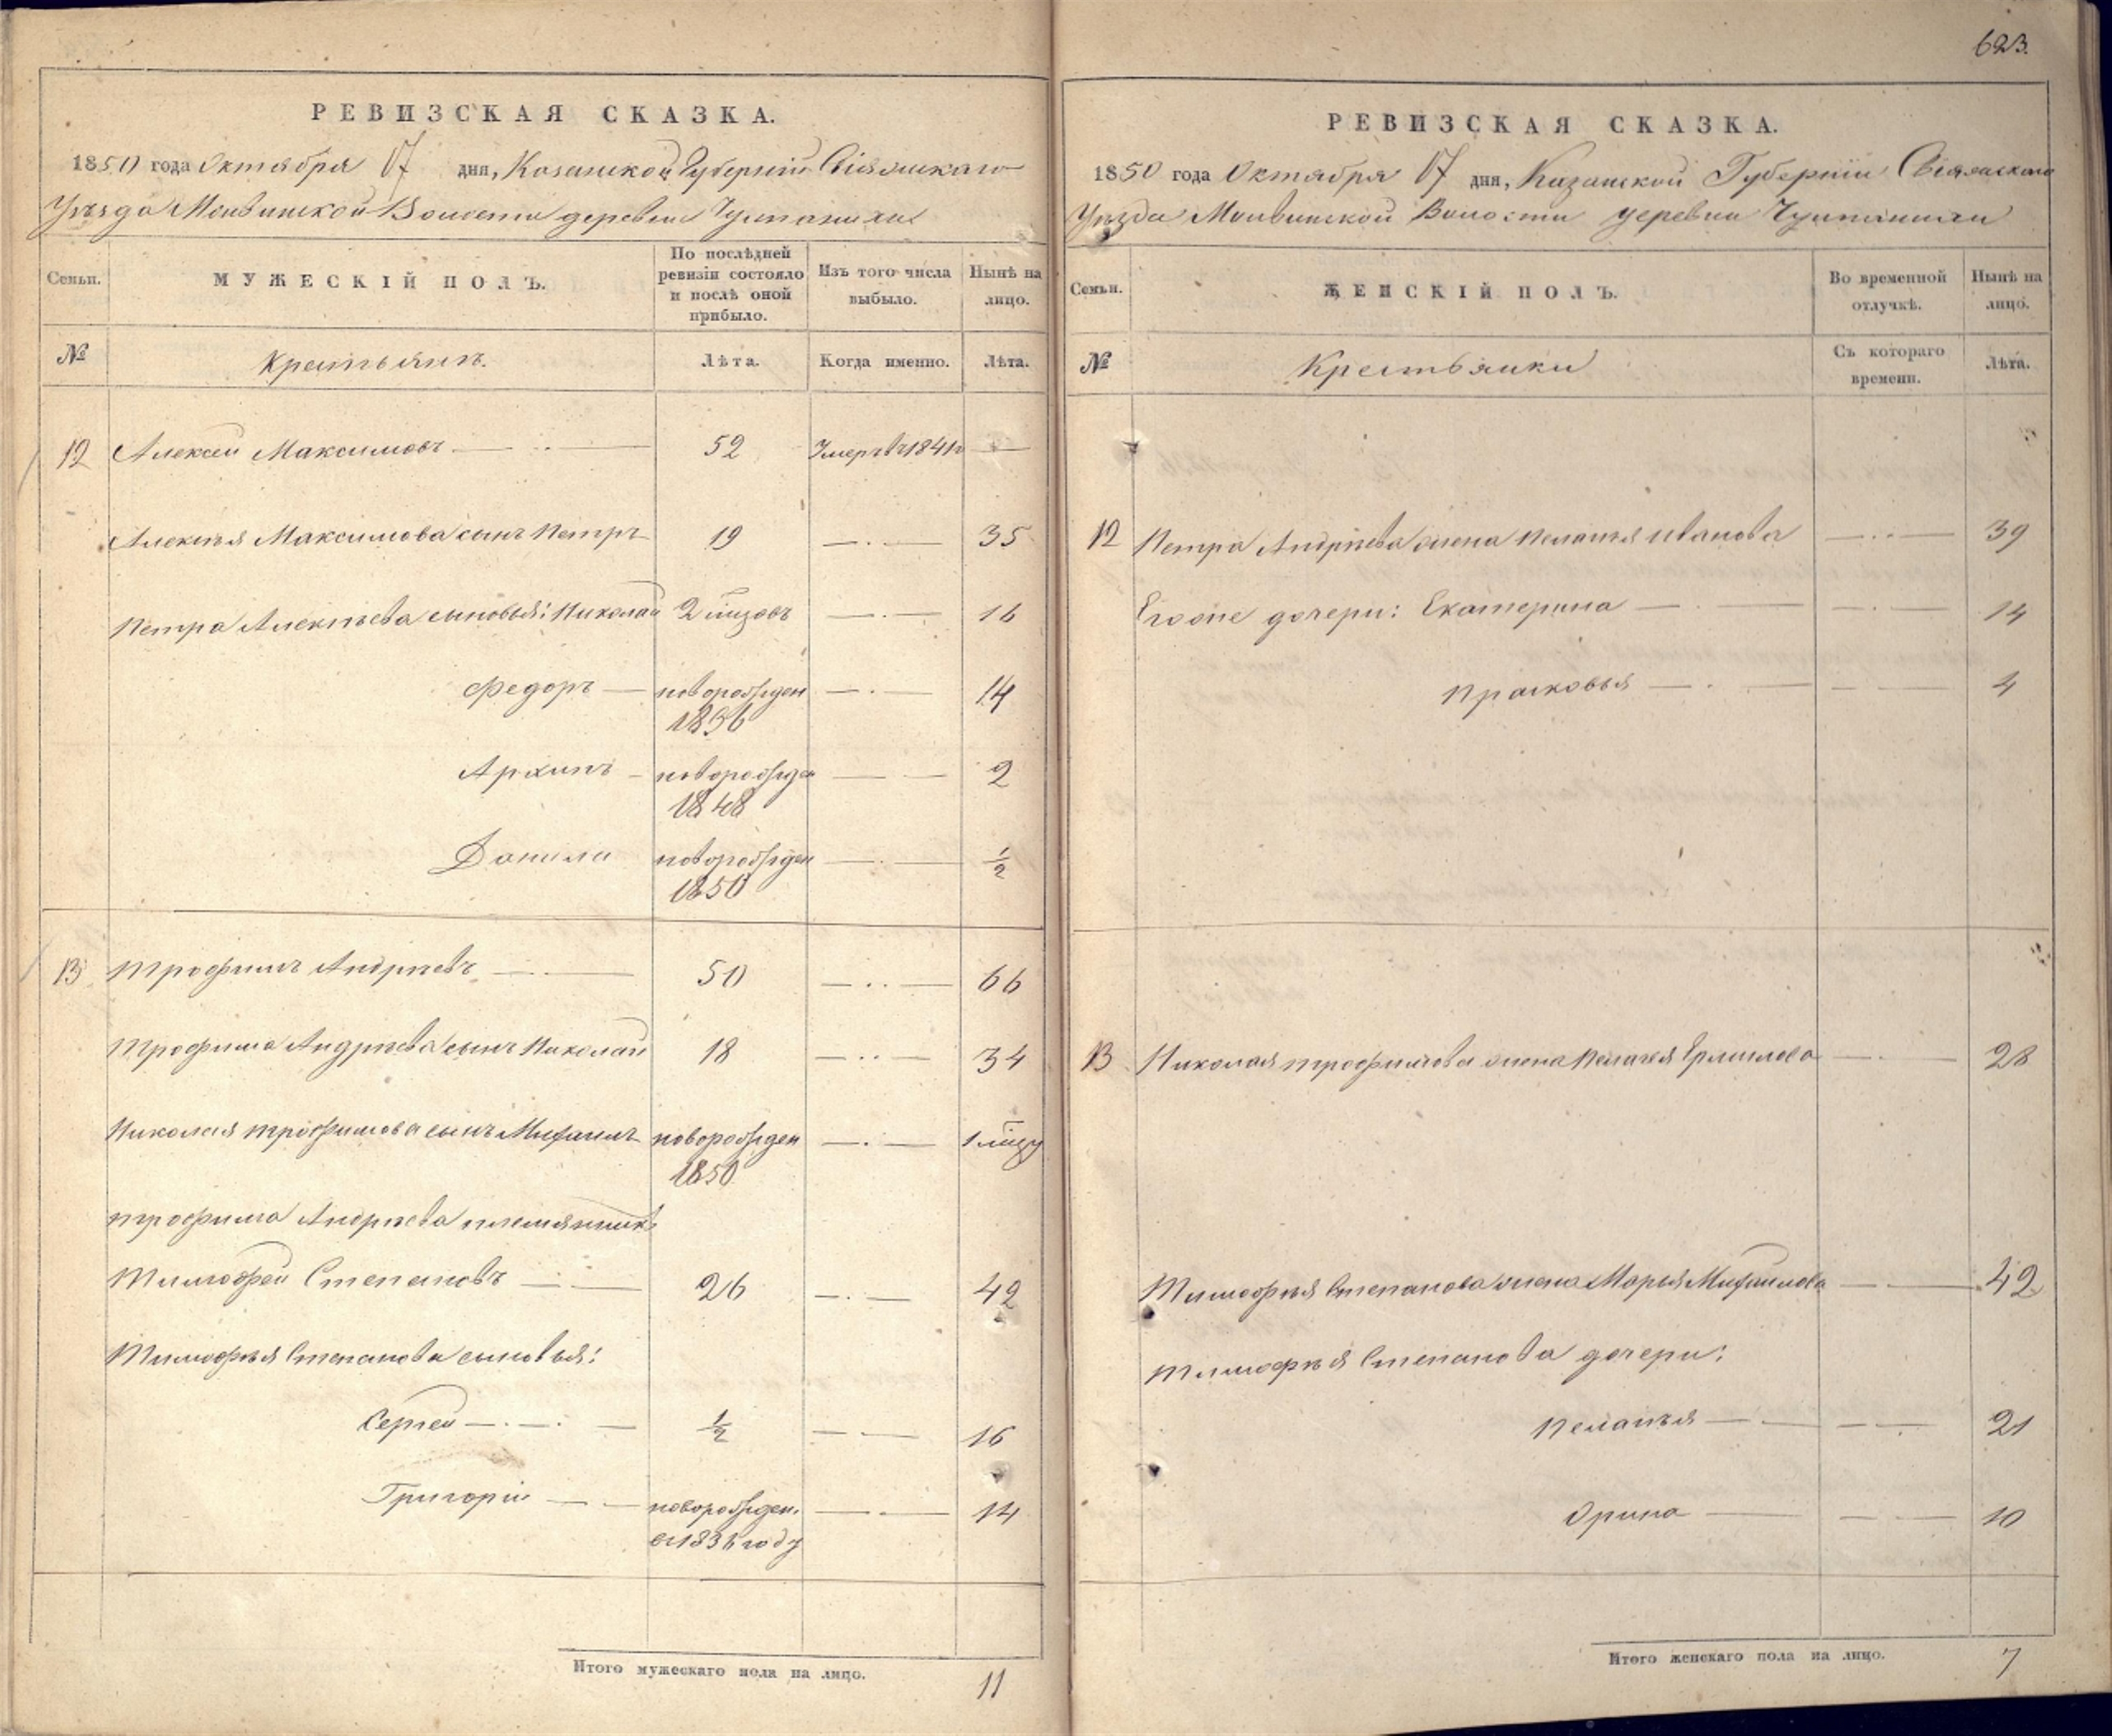 623.
РЕВИЗСКАЯ СКАЗКА.
1850 года Октября 17 дня, Казанской Губернии Свіяжскаго
Уѣзда Молвинской Волости деревни
Семьи.
МУЖЕСКІЙ ПОЛЪ.
По послѣдней ревизіи состояло и послѣ оной прибыло.
Изъ того числа выбыло.
Нынѣ на лицо.
№
Крестьянъ.
Лѣта.
Когда именно.
Лѣта.
12 Алексей Максимовъ 52 Умеръ въ 1841 г
Алексѣя Максимова сынъ Петръ 19 35
Петра Алексѣева сыновья: Николай 2 мѣсяцовъ 16
Федоръ новорожден 14
1836
Архипъ новорожден 2
1848
Данила новорожден ½
1850
13 Трофимъ Андрѣевъ 50 66
Трофима Андрѣева сынъ Николай 18 34
Николая Трофимова сынъ Михаилъ новорожден 1 мѣсяцу
1850
Трофима Андрѣева племянникъ
Тимофей Степановъ 26 42
Тимофѣя Степанова сыновья:
Сергей ½ 16
Григорій новорожден. 14
въ 1836 году
Итого мужескаго пола на лицо. 11
РЕВИЗСКАЯ СКАЗКА.
1850 года Октября 17 дня, Казанской Губерніи Свіяжскаго
Уѣзда Молвинской Волости деревни
Семьи.
ЖЕНСКІЙ ПОЛЪ.
Во временной отлучкѣ.
Нынѣ на лицо.
№
Крестьянки
Съ котораго времени.
Лѣта.
12 Петра Андрѣева жена Пелагѣя Иванова 39
Егоже дочери: Екатерина 14
Прасковья 4
13 Николая Трофимова жена Пелагѣя Ермилова 28
Тимофѣя Степанова жена Марья Михаилова 42
Тимофѣя Степанова дочери:
Пелагѣя 21
Орина 10
Итого женскаго пола на лицо. 7